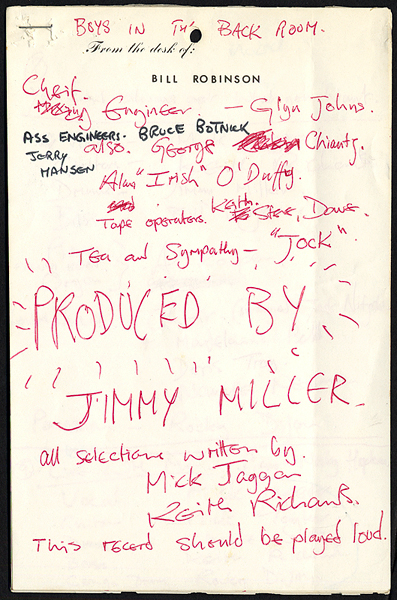 BOYS IN TH' BACK ROOM.
From the desk of:
BILL ROBINSON
Cheif.
Engineer. — Glyn Johns.
ASS ENGINEERS. BRUCE BOTNICK
JERRY HANSEN
also. George Chiantz.
Alan "Irish" O'Duffy.
Tape operators. Keith. Steve, Dave.
Tea and Sympathy — "Jock".
PRODUCED BY
JIMMY MILLER.
all selections written by.
Mick Jagger
Keith Richards.
This record should be played loud.